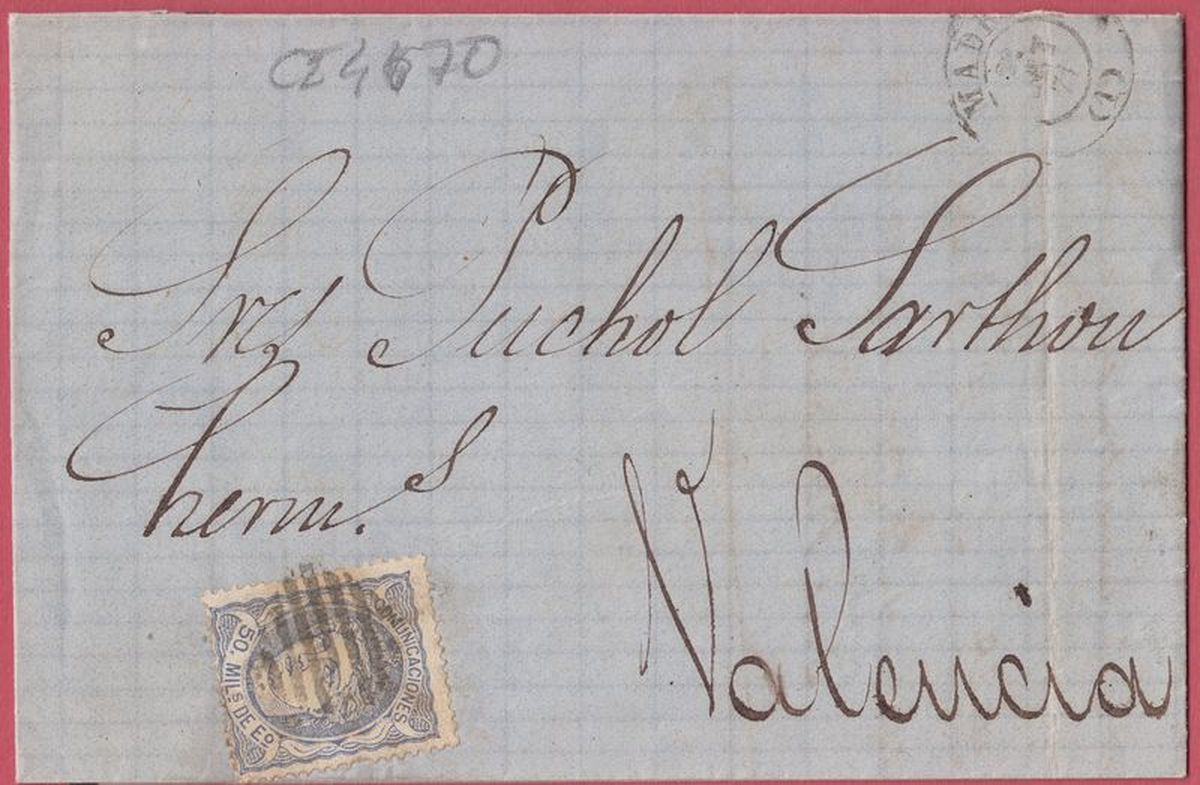 CE4670
MADRID (1)
Srs Puchol Sarthou
herm.s
Valencia
COMUNICACIONES
50. MILS DE Eº